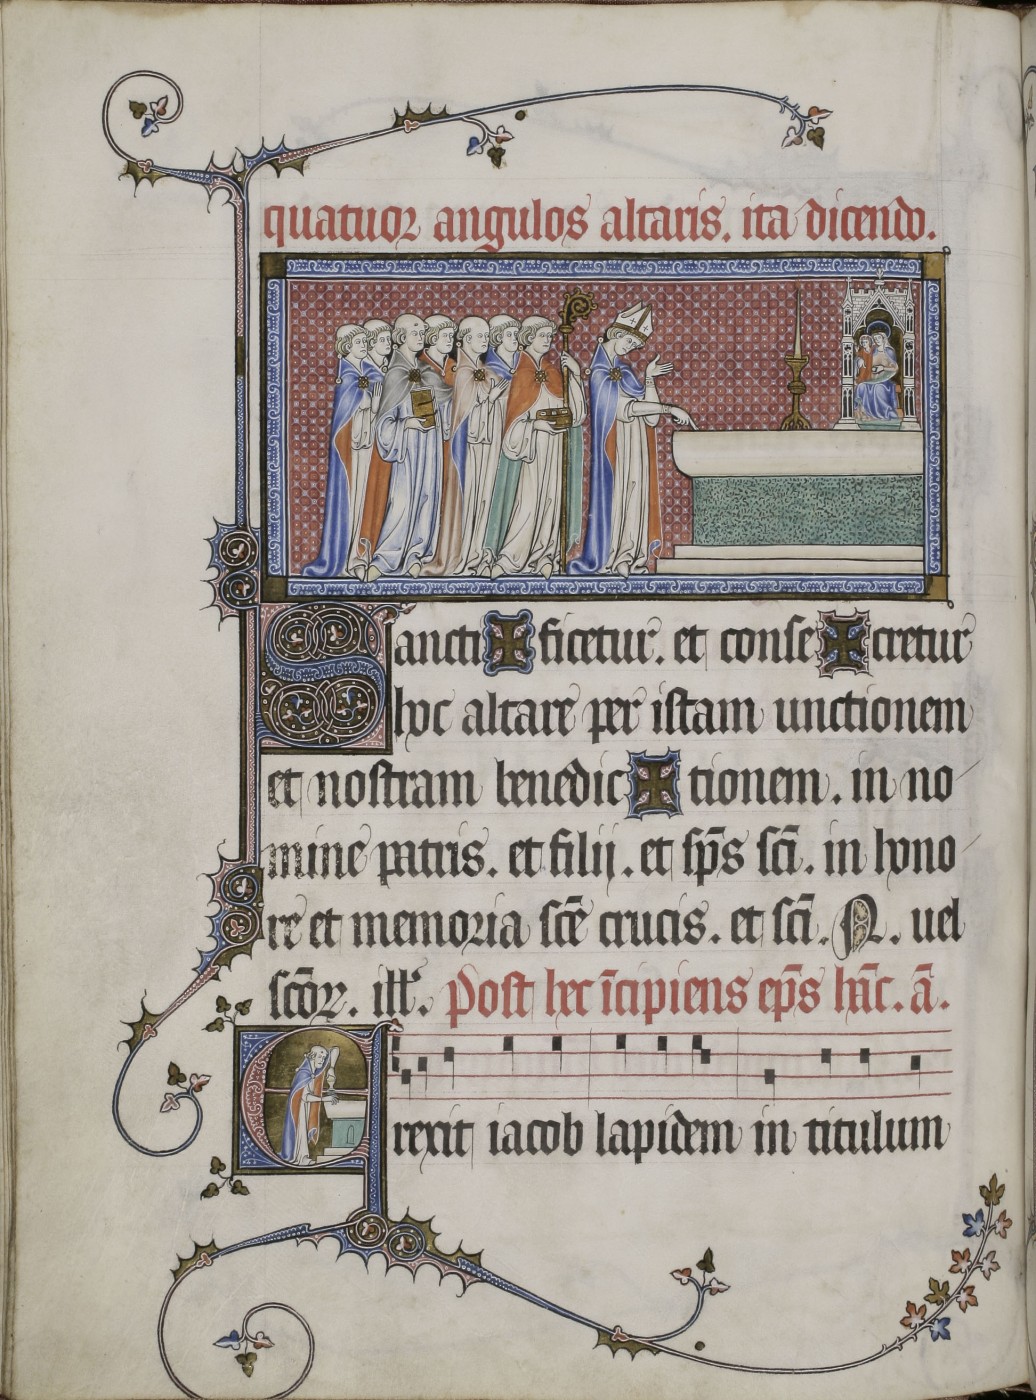 quatuor angulos altaris. ita dicendo.
Sancti✠ficetur. et conse✠cretur
hoc altare per istam unctionem
et nostram benedic✠tionem. in no
mine patris. et filij. et sp̄s sc̄i. in hono
re et memoria sc̄e crucis. et sc̄i. N. uel
sc̄oꝝ. ill'. Post hec īcipiens ep̄s hanc. ā.
Erexit iacob lapidem in titulum